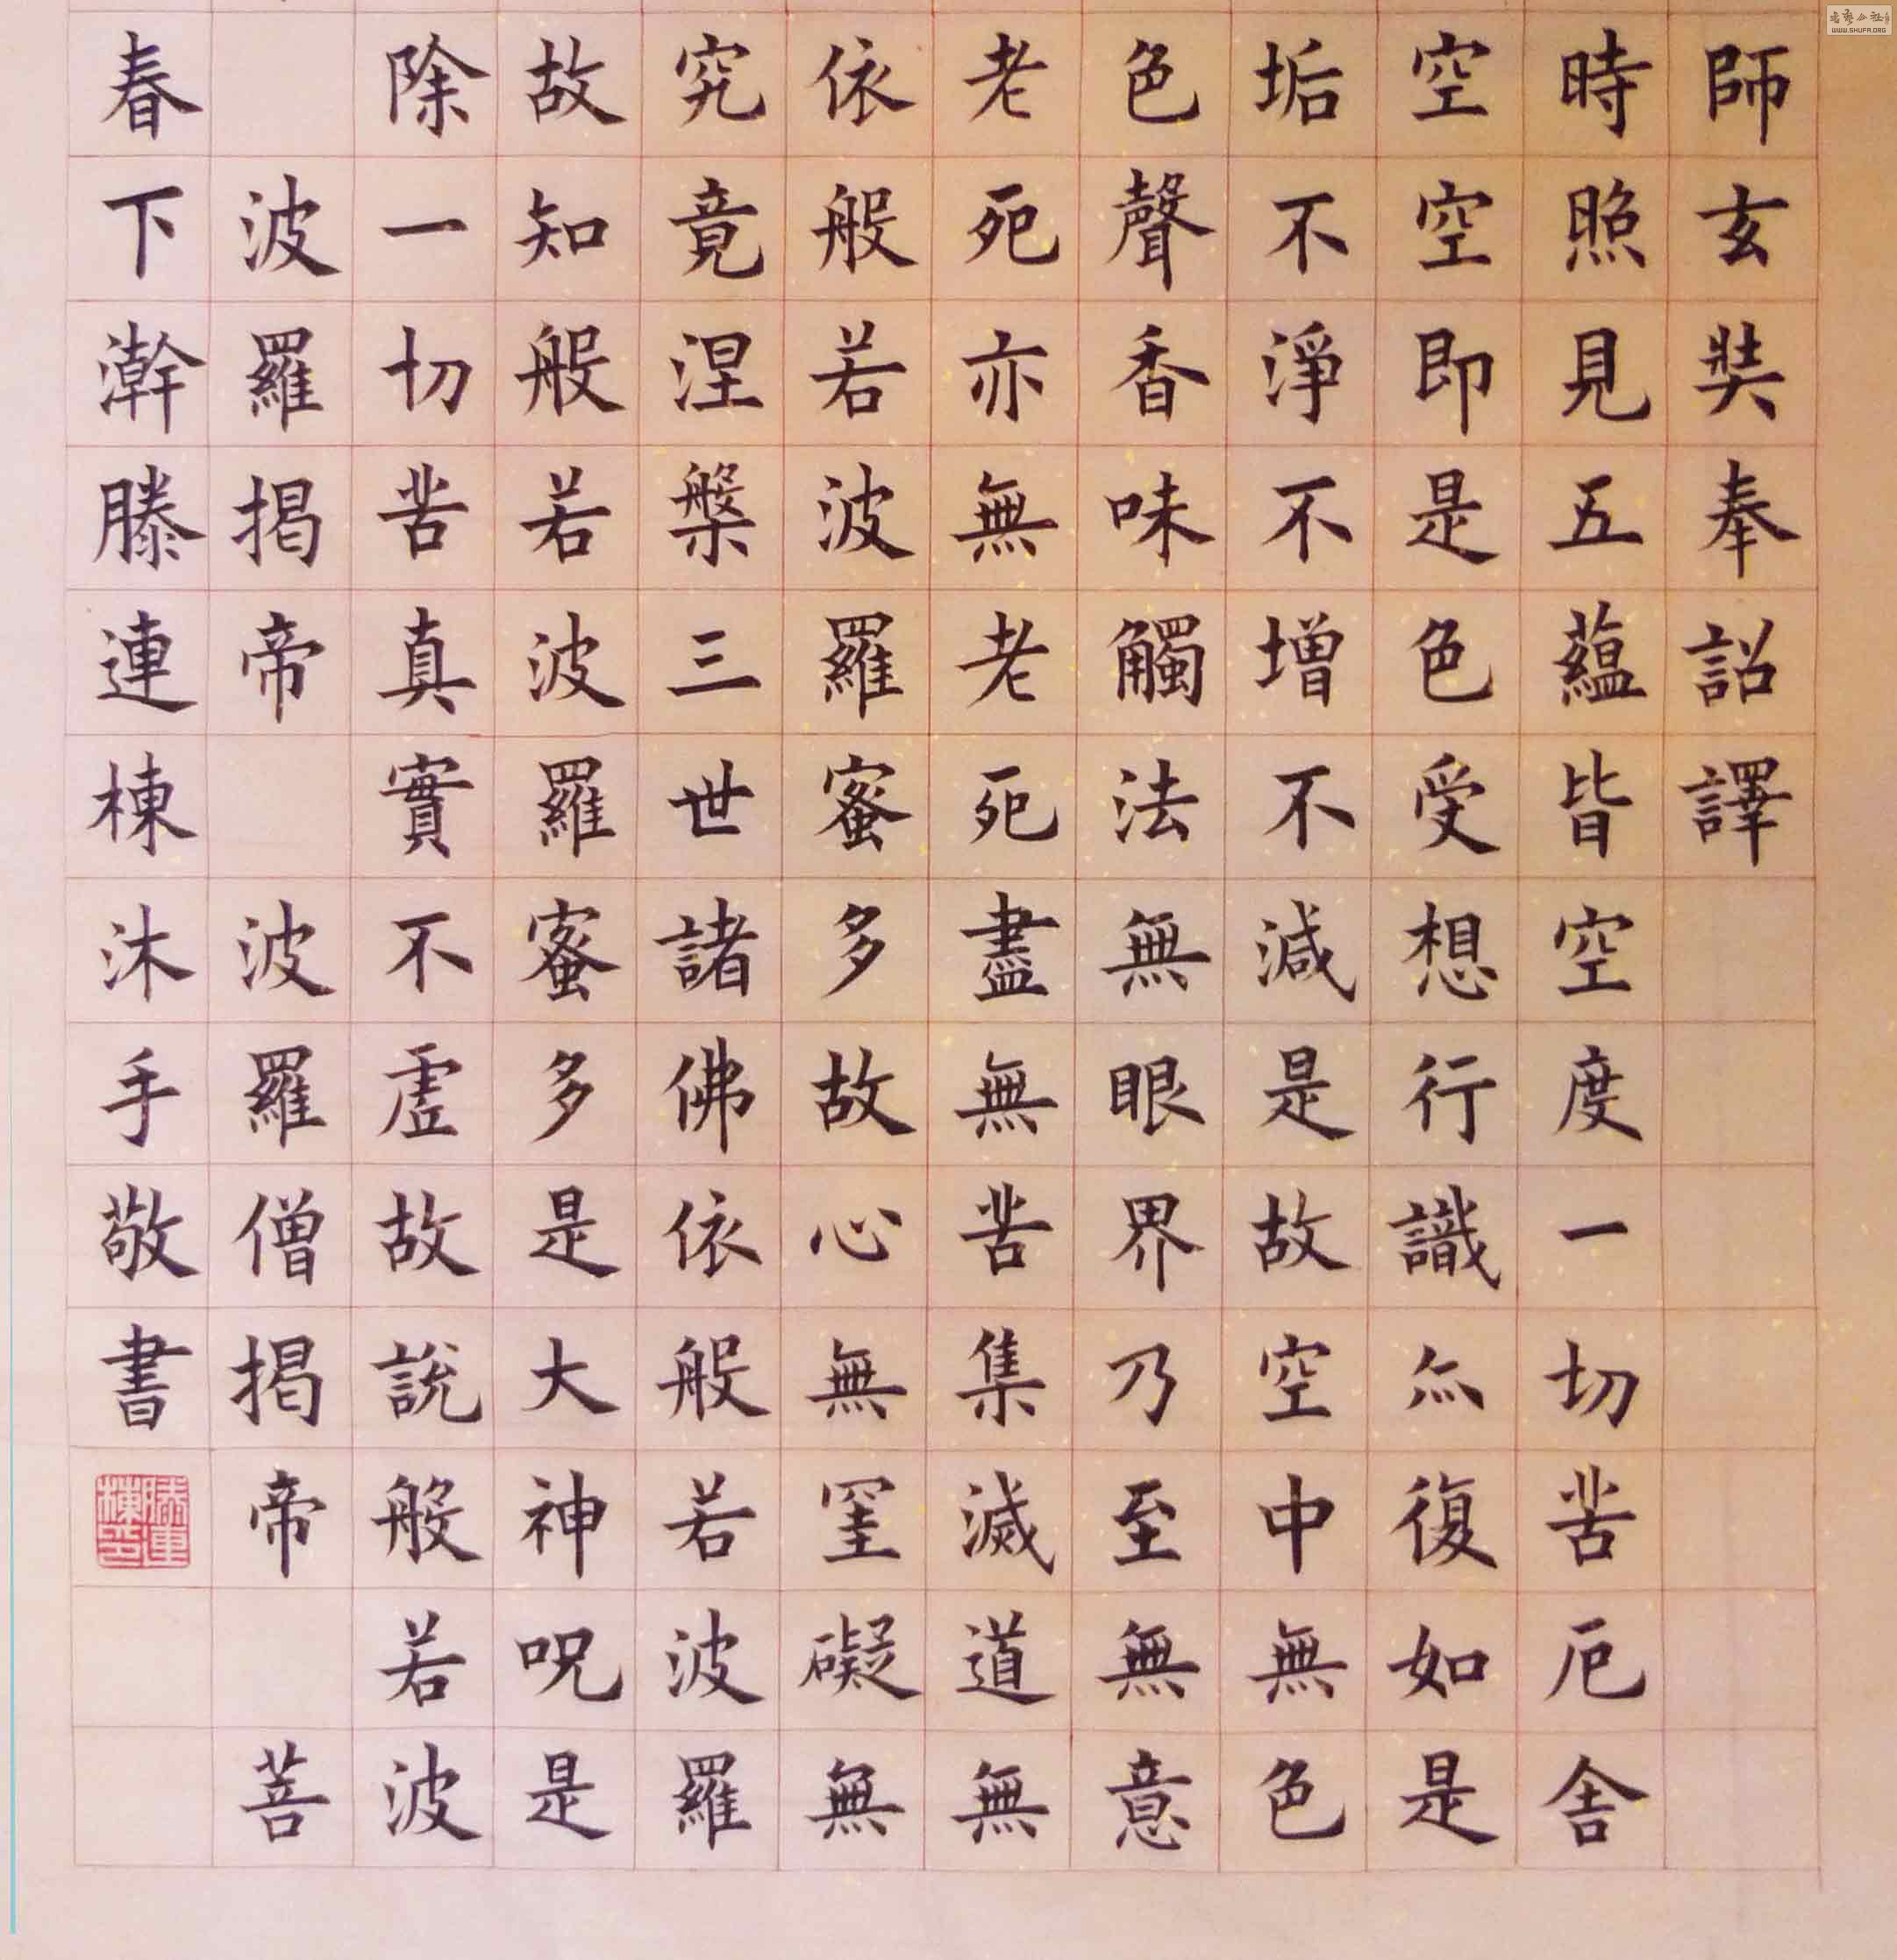 師玄奘奉詔譯
時照見五蘊皆空度一切苦厄舍
空空即是色受想行識亦復如是
垢不淨不增不減是故空中無色
色聲香味觸法無眼界乃至無意
老死亦無老死盡無苦集滅道無
依般若波羅蜜多故心無罣礙無
究竟涅槃三世諸佛依般若波羅
故知般若波羅蜜多是大神呪是
除一切苦真實不虛故說般若波
波羅揭帝 波羅僧揭帝 菩
春下澣滕連棟沐手敬書
滕連棟印
WWW.SHUFA.ORG